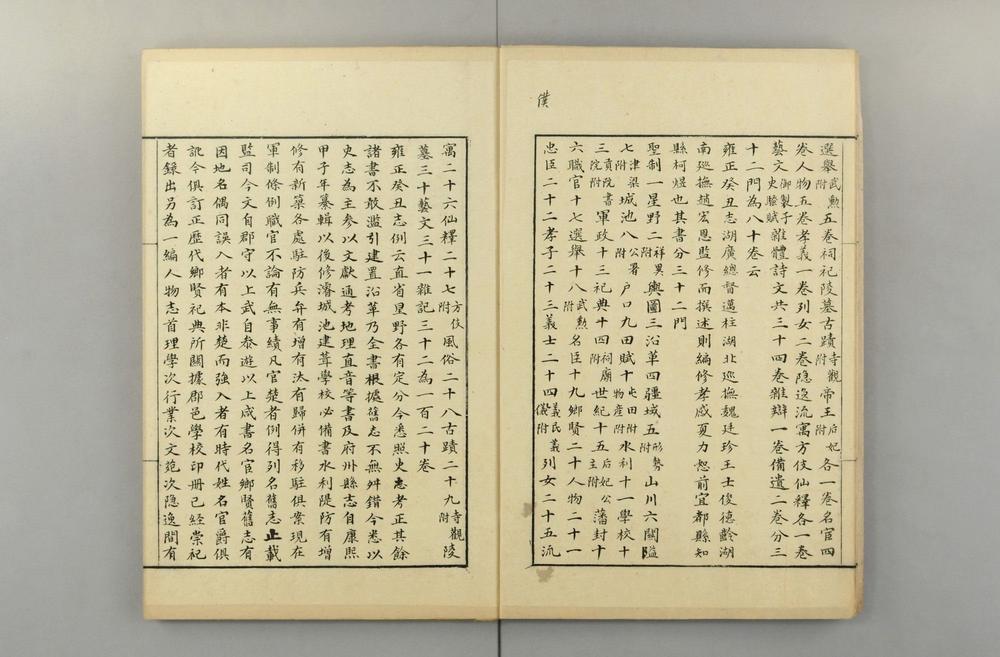 僕
選舉武勲附五卷祠祀陵墓古蹟寺觀附帝王后妃附各一卷名宦四
卷人物五卷孝義一卷列女二卷隱逸流寓方伎仙釋各一卷
藝文御製子史騷賦雜體詩文共三十四卷雜辯一卷備遺二卷分三
十二門為八十卷云
雍正癸丑志湖廣總督邁柱湖北巡撫魏廷珍王士俊德齡湖
南巡撫趙宏恩監修而撰述則編修孝感夏力恕前宜都縣知
縣柯煜也其書分三十二門
聖制一星野二祥異附輿圖三沿革四疆域五形勢附山川六關隘
七津梁附城池八公署附户口九田賦十屯田物產附水利十一學校十
三貢院書院附軍政十三祀典十四祠廟附世紀十五后妃公主附藩封十
六職官十七選舉十八武勲附名臣十九鄉賢二十人物二十一
忠臣二十二孝子二十三義士二十四義民義儀附列女二十五流
寓二十六仙釋二十七方伎附風俗二十八古蹟二十九寺觀附陵
墓三十藝文三十一雜記三十二為一百二十卷
雍正癸丑志例云直省星野各有定分今悉照史志考正其餘
諸書不敢濫引建置沿革乃全書根據舊志不無舛錯今悉以
史志為主參以文獻通考地理直音等書及府州縣志自康熙
甲子年纂輯以後修濬城池建葺學校必備書水利隄防有增
修有新築各處駐防兵弁有增有汰有歸併有移駐俱案現在
軍制條例職官不論有無事績凡官楚者例得列名舊志止載
監司今文自郡守以上武自泰遊以上咸書名宦鄉賢舊志有
因地名偶同誤入者有本非楚而強入者有時代姓名官爵俱
訛今俱訂正歷代鄉賢祀典所關據郡邑學校印冊已經崇祀
者錄出另為一編人物志首理學次行業次文苑次隱逸間有